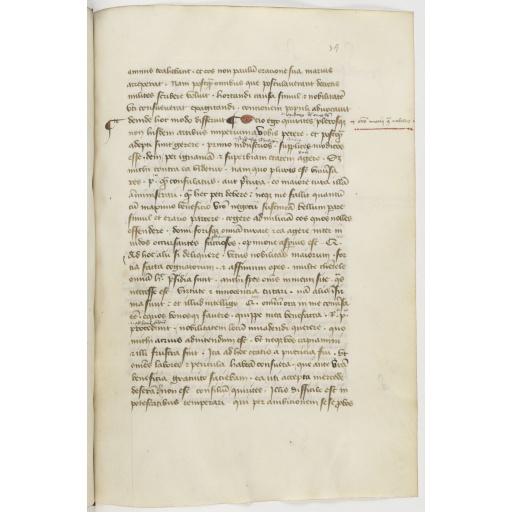 39
et eos non paulum oratione sua marius
arrexerat · Nam postq̄ omnibus que postulauerat decretis
milites scribere voluit · hortandi causa simul et nobilitatē
vti consueuerat exagitandi · contionem populi aduocauit
deinde hoc modo disseruit Scio ego quirites plerosq3
non hisdem artibus imperium a vobis petere · et postq̄
adepti sunt gerere · primo industrios · supplices modicos
esse · dein per ignauiā et superbiam etatem agere · Sz
michi contra ea videtur · nam quo pluris est vniūsa
res p · q̄ consulatus aut p̄tura · eo maiore cura illā
aministrari · q̄ hec peti debere · neq3 me fallit quantū
cū maximo beneficio vr̄o negocii sustineā bellum pare
simul et erario parcere · cogere ad miliciā eos quos nolles
offendere · domi forisq3 omia curare · et ea agere inter in
uidos occursantes factiosos · opinione asperius est · Q
Ad hoc alii si deliquere · vetus nobilitas maiorum for
tia facta cognatorum · et affinium opes · multe clientele
omnia h p̄sidia sunt · michi spes om̄s in me sunt site · q̄s
necesse est virtute et innocentia tutari · nā alia infir
ma sunt · et illud intelligo Q · omniū ora in me conūsa
eē · equos bonosq3 fauere · quippe mea benefacta · R · p̄
procedunt · nobilitatem locū inuadendi querere · quo
michi acrius adnitendum est · vt neq3 vos capiamini
et illi frustra sint · Ita ad hoc etatis a puericia fui · vt
omēs labores et pericula habeā consueta · que ante vr̄a
beneficia gratuito faciebam · ea uti accepta mercede
deserā non est consilium quirites · Illis difficile est in
potestatibus temperari · qui per ambitionem sese probos